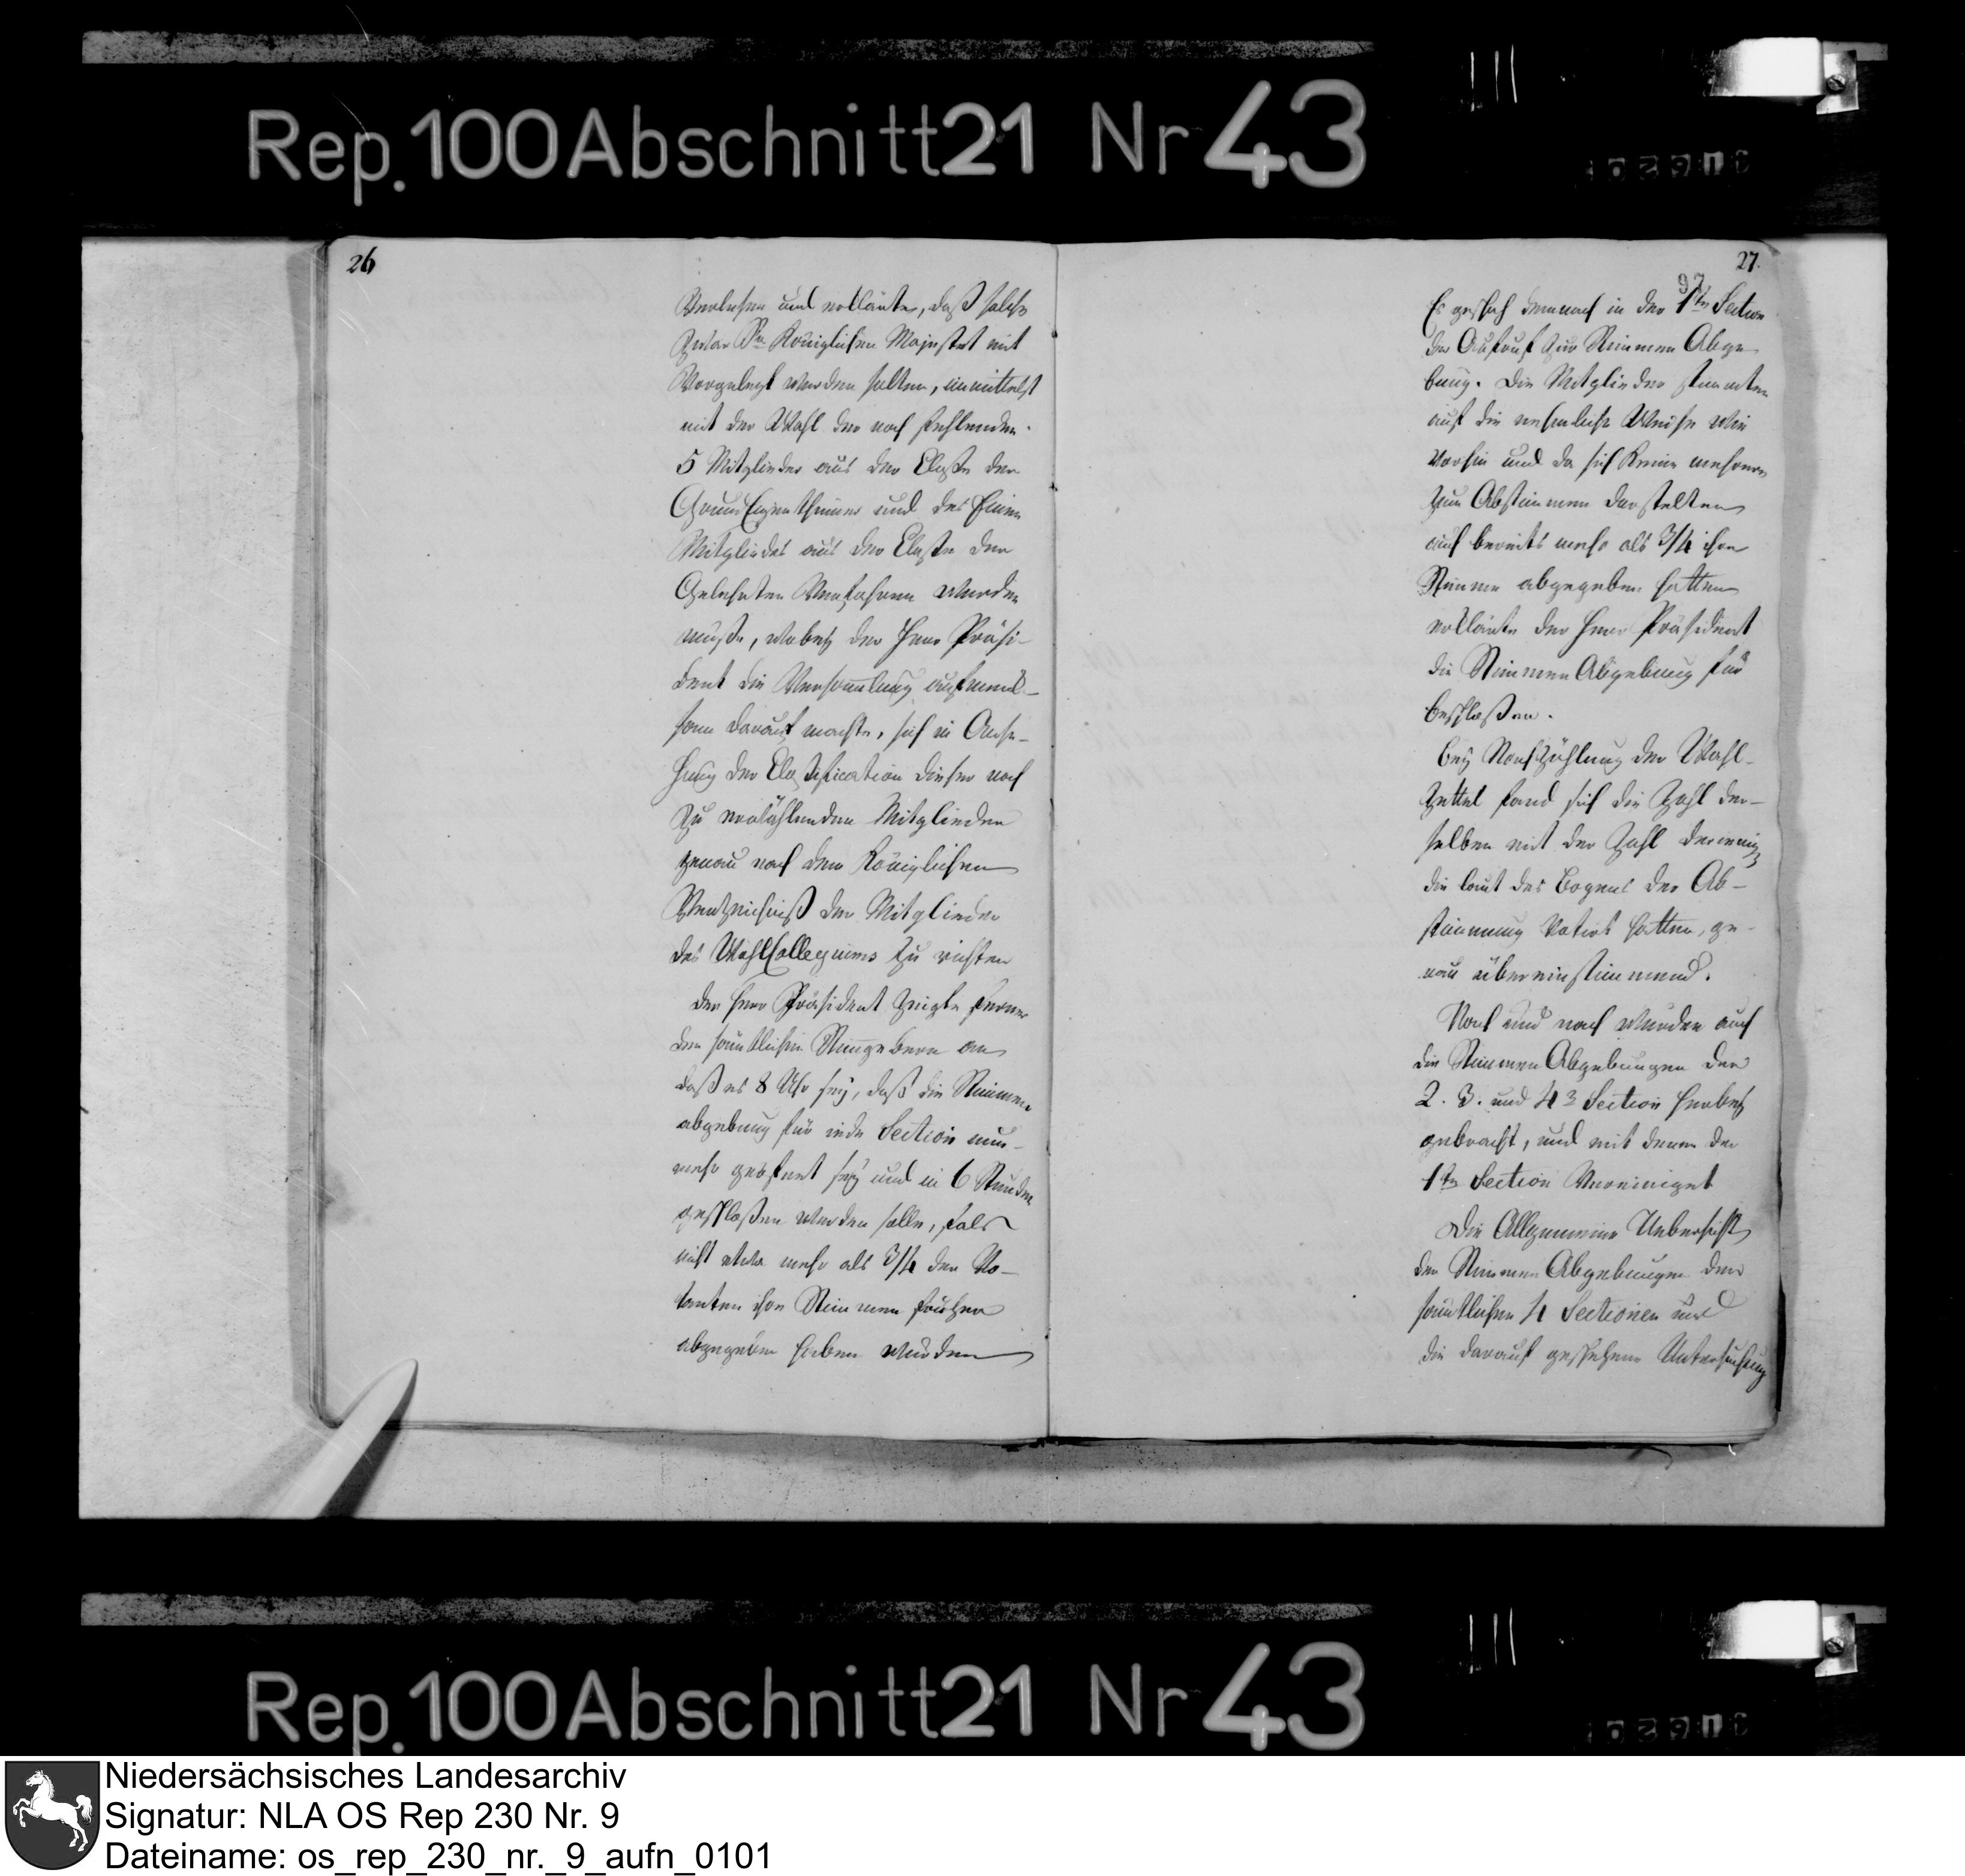 Rep. 100 Abschnitt 21 Nr 43
26
Verlesen und erklärte, daß solche
zwar Sr. Königlichen Majestet mit
Vorgelegt werden sollten, inmittelst
mit der Wahl der noch fehlenden
5 Mitglieder aus der Claße der
GrundEigenthümer und des Einen
Mitgliedes aus der Claße der
Gelehrten Verfahren werden
müße, wobey der Herr Präsi-
dent die Versamlung aufmerk-
sam darauf machte, sich in Anse-
hung der Claßification dieser noch
zu erwählenden Mitglieder
genau nach dem Königlichen
Verzeichniß der Mitglieder
des WahlCollegiums zu richten
Der Herr Präsident zeigte ferner
den sämtlichen Stimgebern an
daß es 8 Uhr sey, daß die Stimmen
abgebung für jede Section nun-
mehr geöfnet sey und in 6 Stunden
geschloßen werden solle, fals
nicht etwa mehr als 3/4 der Vo-
tanten ihre Stimmen früher
abgegeben haben würden
27.
97
Es geschah demnach in der 1ten Section
der Aufruf zur Stimmen Abge
bung. Die Mitglieder stimmten
auf die nehmliche Weise wie
vorhin und da sich keine mehrere
zum Abstimmen darstelten
auch bereits mehr als 3/4 ihre
Stimme abgegeben hatten
erklärte der Herr Präsident
die Stimmen Abgebung für
beschloßen.
Bey Nachzählung der Wahl-
zettel fand sich die Zahl der-
selben mit der Zahl derjenig
die laut des Bogens der Ab-
stimmung Votirt hatten, ge-
nau übereinstimmend.
Nach und nach wurden auch
die Stimmen Abgebungen der
2. 3. und 4 Section herbey
gebracht, und mit denen der
1ten Section Vereiniget
Die Allgemeine Uebersicht
der Stimmen Abgebungen der
sämtlichen 4 Sectionen und
die darauf geschehene Untersuchung
Rep. 100 Abschnitt 21 Nr 43
Niedersächsisches Landesarchiv
Signatur: NLA OS Rep 230 Nr. 9
Dateiname: os_rep_230_nr._9_aufn_0101